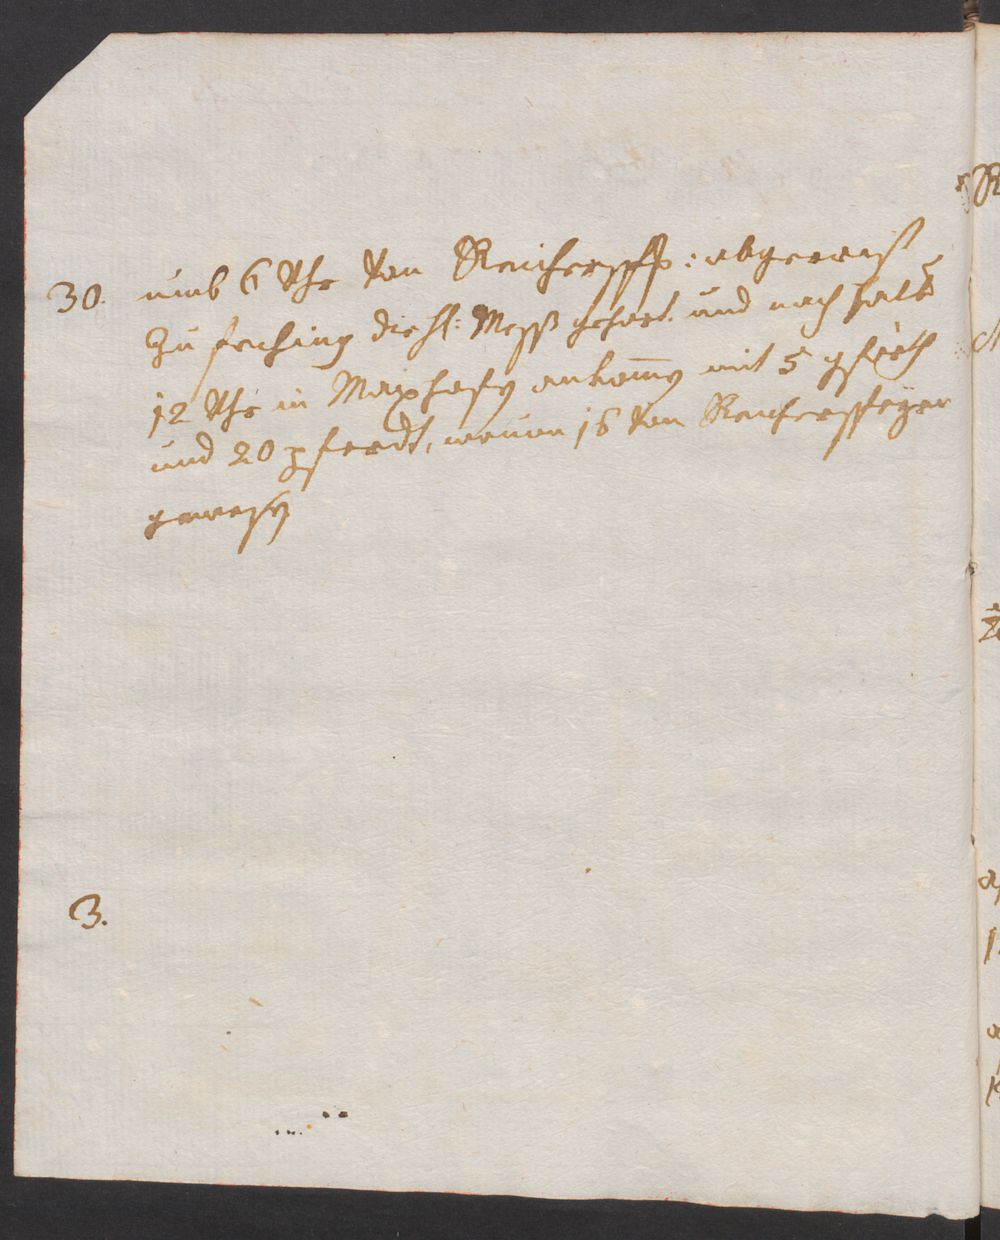 30. umb 6 Uhr von abgereist
Zu die hl: Mess gehört. und nach halb
12 Uhr in ankomen mit 5
und 20 pferdt, wouon 16 von
gewesen
3.